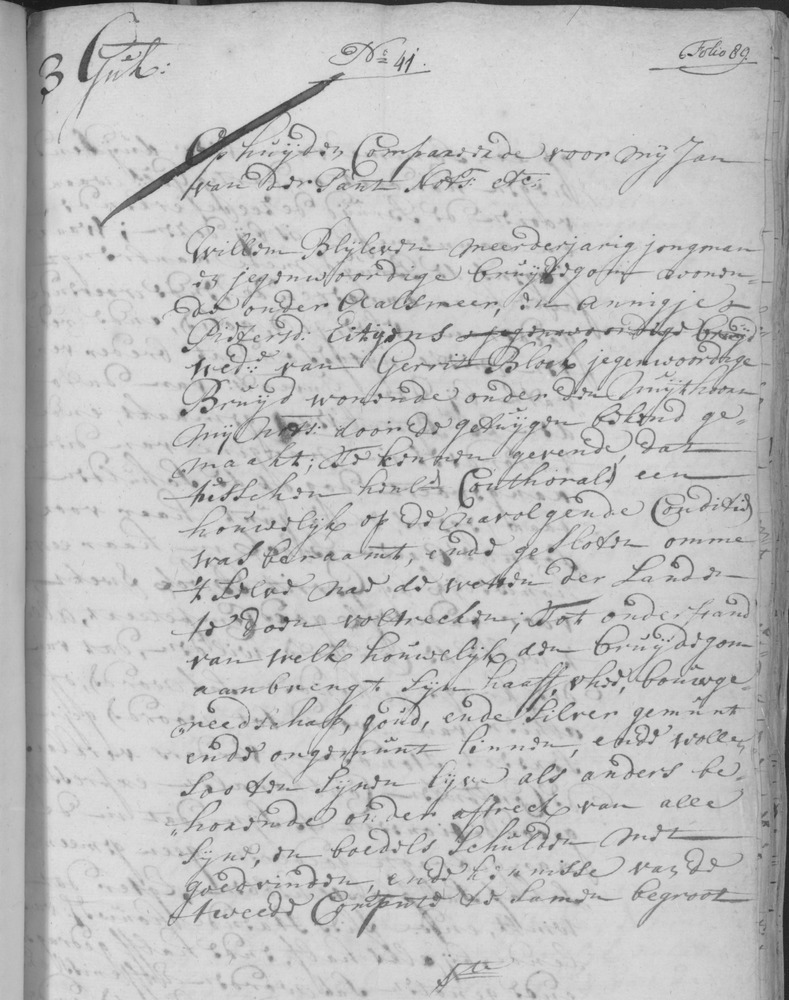 3 Gul: No 41. Folio 89.
Op huijden Compareerde voor mij Jan
van der Pant Nots: etc:
Willem Blyleven meerderjarig jongman
en jegenwoordige bruijdegom wonen-
de onder Aalsmeer, en Annigje
Pieters: Eitijens jegenwoordige bruijd
wed: van Gerrit Block jegenwoordige
Bruijd wonende onder den Uuijthoorn
mij nots: door de getuijgen bekend ge-
maakt; Te kennen gevende, dat
tusschen henl: Conthorals een
houwelijk op de navolgende Conditie
was beraamt, ende gesloten omme
't selve nae de wetten der Landen
te doen voltrecken; Tot onderstand
van welk houwelijk den bruijdegom
aanbrengt sijn haaff, vhee, bouwge-
reedschap, goud, ende silver gemunt
ende ongemunt linnen, ende wollen
soo ten sijnen lyve als anders be-
hoorende onder aftreck van alle
sijne, en boedels schulden met
goedvinden, ende kennisse van de
tweede Compnte te samen begroot